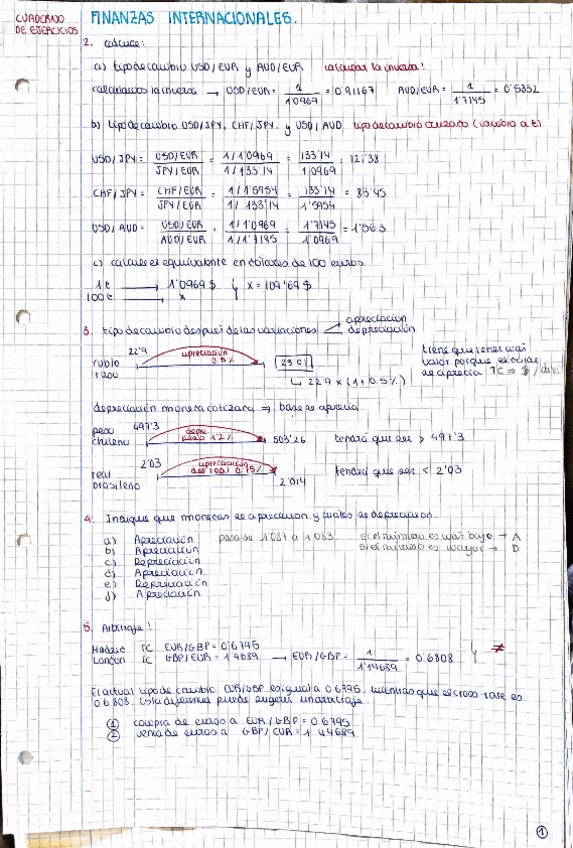 CUADERNO DE EJERCICIOS
FINANZAS INTERNACIONALES.
2. Calcule:
a) tipo de cambio USD/EUR y AUD/EUR calcular la inversa!
calculamos la inversa → USD/EUR = 1 / 1'0969 = 0'91167 AUD/EUR = 1 / 1'7145 = 0'5832
b) tipo de cambio USD/JPY, CHF/JPY. y USD/AUD tipo de cambio cruzado (cambio a €)
USD/JPY = USD/EUR / JPY/EUR = 1/1'0969 / 1/133'14 = 133'14 / 1'0969 = 121'38
CHF/JPY = CHF/EUR / JPY/EUR = 1/1'5954 / 1/133'14 = 133'14 / 1'5954 = 83'45
USD/AUD = USD/EUR / AUD/EUR = 1/1'0969 / 1/1'7145 = 1'7145 / 1'0969 = 1'563
c) calcule el equivalente en dólares de 100 euros
1€ → 1'0969 $
100€ → x } x = 109'69 $
3. tipo de cambio después de las variaciones apreciación
depreciación
22'9 apreciación 0.5%
rublo
→ 22'9 x (1+0.5%)
tiene que tener más
valor porque el dólar
se aprecia TC ⇒ $/
depreciación moneda cotizada ⇒ base se aprecia
peso chileno 497'3 depre peso 1'2% 503'26 tendrá que ser > 497'3
real brasileño 2'03 apreciación del real 0.75% 2'014 tendrá que ser < 2'03
4. Indique que monedas se apreciaron y cuales se depreciaron
a) Apreciación pasa de 1'081 a 1'083 si el número es más bajo → A
b) Apreciación si el número es mayor → D
c) Depreciación
d) Apreciación
e) Depreciación
f) Apreciación
5. Arbitraje!
Madrid TC EUR/GBP = 0'6795
London TC GBP/EUR = 1'4689 → EUR/GBP = 1 / 1'14689 = 0'6808 } ≠
El actual tipo de cambio EUR/GBP es igual a 0'6795, mientras que el cross-rate es
0'6808. Esta diferencia puede sugerir un arbitraje.
① compra de euros a EUR/GBP = 0'6795
② venta de euros a GBP/EUR = 1'44689
①